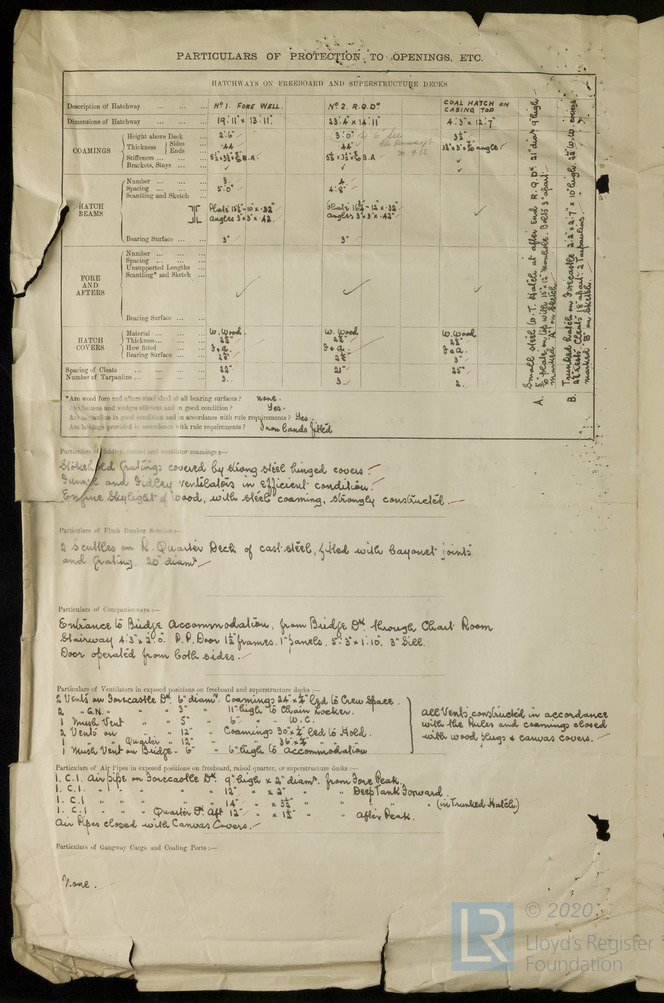 PARTICULARS OF PROTECTION TO OPENINGS, ETC.
HATCHWAYS ON FREEBOARD AND SUPERSTRUCTURE DECKS
Description of Hatchway ... Nº 1. FORE WELL. Nº 2. R.Q.Dk COAL HATCH ON CASING TOP
Dimensions of Hatchway ... 19'.11" × 13'.11" 23'.4" × 14'.11" 4'.3" × 12'.7"
COAMINGS
Height above Deck 2'.6" 3'.0" 3½"
Thickness Sides Ends .44 .44 angle
Stiffeners B.A. B.A.
Brackets, Stays
HATCH BEAMS
Number 3 4
Spacing 5'.0" 4'.8"
Scantling and Sketch
Plate Plate
Angles 3" × 3" × .42 Angles 3" × 3" × .42"
Bearing Surface 3" 3"
FORE AND AFTERS
Number
Spacing
Unsupported Lengths
Scantling* and Sketch
Bearing Surface
HATCH COVERS
Material W. Wood W. Wood W. Wood
Thickness 2½" 2½" 2½"
How fitted F & A F & A F & A.
Bearing Surface 3"
Spacing of Cleats 22" 21" 25"
Number of Tarpaulins 3. 3. 2.
A. Small steel W.T. Hatch at after end R.Q.Dk 21" diam. high
marked "A" on Sketch.
B. Trunked Hatch on Forecastle 2'.2" × 2'.7" × 10" high. 2½" W.W. covers
Cleats 18" apart. 2 Tarpaulins.
marked "B" on Sketch.
*Are wood fore and afters steel shod at all bearing surfaces? none.
Are battens and wedges efficient and in good condition? Yes.
Are tarpaulins in good condition and in accordance with rule requirements? Yes.
Are lashings provided in accordance with rule requirements? Iron bands fitted
Particulars of fiddley, funnel and ventilator coamings:—
Stokehold Gratings covered by strong steel hinged covers.
Funnel and Fidley ventilators in Efficient condition.
Engine Skylight of wood, with steel coaming, strongly constructed
Particulars of Flush Bunker Scuttles:—
2 Scuttles on R. Quarter Deck of cast steel, fitted with bayonet joints
and grating. 20" diamr.
Particulars of Companionways:—
Entrance to Bridge Accommodation, from Bridge Dk. through Chart Room
Stairway 4'.3" × 2'.0". P.P. Door 1½" frames. 1" panels. 5'.3" × 1'.10". 3" Sill.
Door operated from both sides.
Particulars of Ventilators in exposed positions on freeboard and superstructure decks:—
2 Vents on Forecastle Dk. 6" diamr. Coamings 24" × ¼" led to Crew Space.
2 " G.N. " 3" 11" high to Chain Locker.
1 Mush Vent " 5" " 6" " " W.C.
2 Vents on " 12" " Coamings 30" × ¼" led to Hold.
1 " " Quarter " 12" " 36" × ¼" "
1 Mush Vent on Bridge - 6" " 6" high to Accommodation
all Vents constructed in accordance
with the Rules and coamings closed
with wood plugs & canvas covers.
Particulars of Air Pipes in exposed positions on freeboard, raised quarter, or superstructure decks:—
1. C.I. Air pipe on Forecastle Dk. 9" high × 2" diamr. from Fore Peak.
1. C.I. " " " " 12" " × 2" " " Deep Tank Forward
1. C.I. " " " " 14" " × 3½" " " " " (in Trunked Hatch)
1. C.I " " Quarter Dk. Aft 12" " × 1½" " " After Peak.
Air Pipes closed with Canvas Covers.
Particulars of Gangway Cargo and Coaling Ports:—
None.
LR
© 2020
Lloyd's Register
Foundation